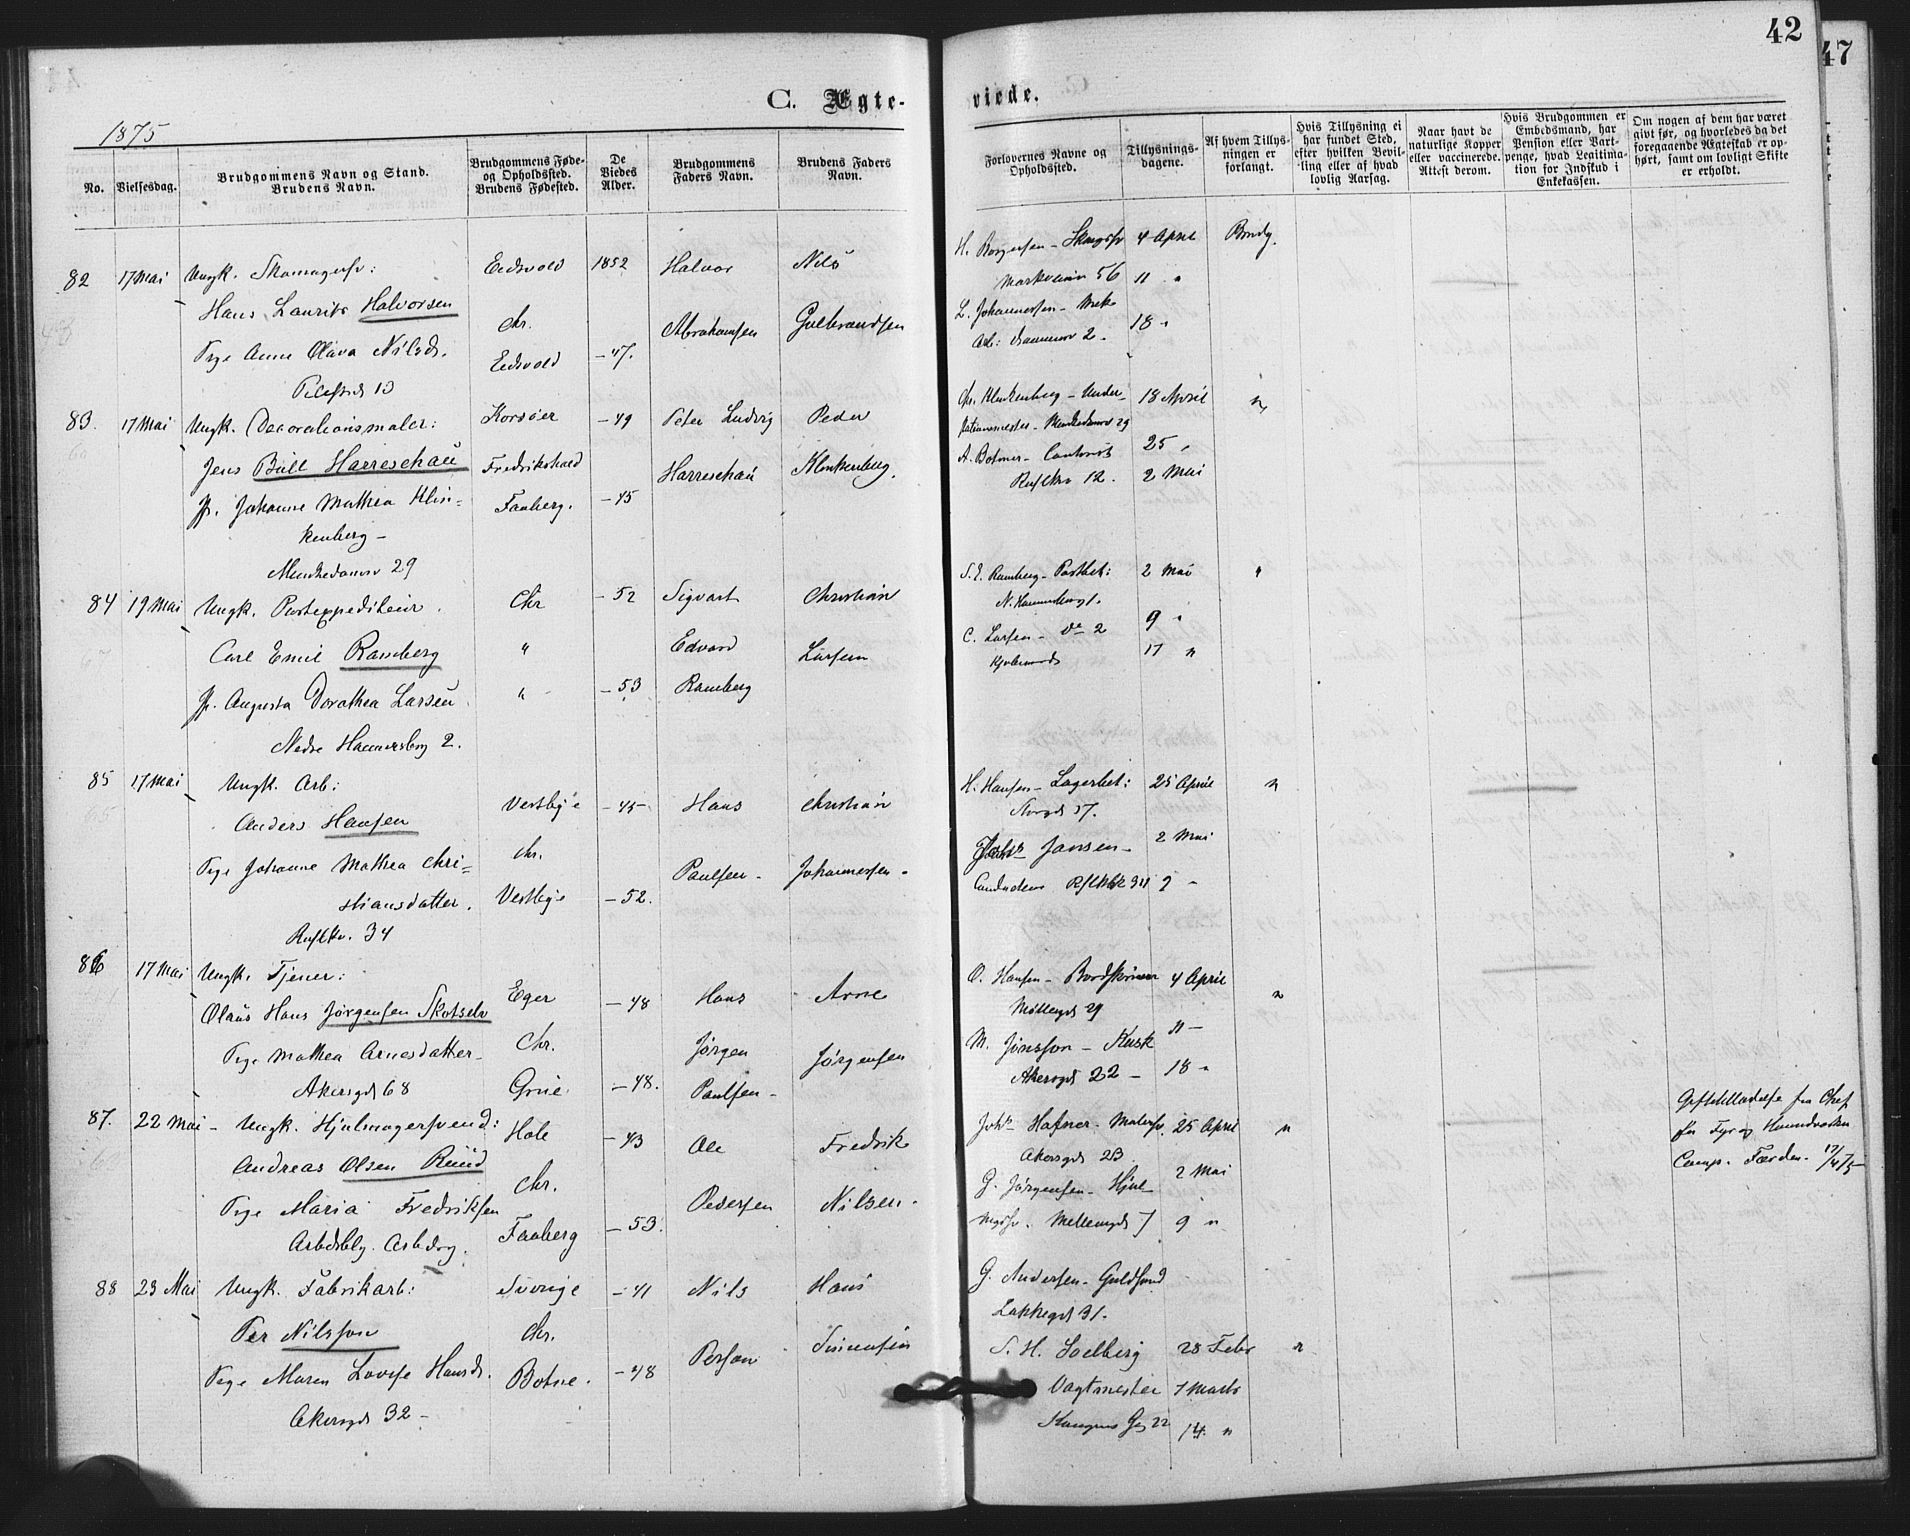 42
47
C. Ægte-
viede.
1875
No.
Vielsesdag.
Brudgommens Navn og Stand.
Brudens Navn.
Brudgommens Føde-
og Opholdssted.
Brudens Fødested.
De
Viedes
Alder.
Brudgommens
Faders Navn.
Brudens Faders
Navn.
Forlovernes Navne og
Opholdssted.
Tillysnings-
dagene.
Af hvem Tillys-
ningen er
forlangt.
Hvis Tillysning ei
har fundet Sted,
efter hvilken Bevil-
ling eller af hvad
lovlig Aarsag.
Naar havt de
naturlige Kopper
eller vaccinerede.
Attest derom.
Hvis Brudgommen er
Embedsmand, har
Pension eller Vart-
penge, hvad Legitima-
tion for Indskud i
Enkekassen.
Om nogen af dem har været
givt før, og hvorledes da det
foregaaende Ægteskab er op-
hørt, samt om lovligt Skifte
er erholdt.
82 17 Mai Ungk. Skomagersv: Eedsvold 1852 Halvor Nils
H. Borgersen - 4 April Brudg.
Hans Laurits Halvorsen
Markveien 56 11 "
Chr. Abrahamsen Gulbrandsen
L. Johannessen - 18 "
Pige Anne Olava Nilsd. Eedsvold - 47.
2.
Pilestræd 10
83. 17 Mai Ungk. Decorationsmaler: Korsöer - 49 Peter Ludvig Peder
Klinkenberg - Under- 18 April "
Munkedamsv 29
Jens Bull Harreschau Fredrikshald Harreschau Klinkenberg.
A. Botner - 25 "
12. 2 Mai
Jfr. Johanne Mathea Klin- Faaberg. - 45
kenberg -
Munkedamsv 29
84 19 Mai Ungk. Postexpediteur. Chr - 52 Sigvart Christian
S. E. Ramberg - Postbet: 2 Mai "
N. Hammersborg 1.
Carl Emil Ramberg " Edvard Larsen
C. Larsen - do 2 9 "
17 "
Jfr. Augusta Dorothea Larsen. " - 53 Ramberg
Nedre Hammersborg 2.
85 17 Mai Ungk. Arb: Vestbye - 45 - Hans Christian
H. Hansen - Lagerbet: 25 April "
Storgd 37.
Anders Hansen
Chr. Paulsen - Johannessen -
Jansen - 2 Mai
9 -
Pige Johanne Mathea Chri-
stiansdatter. Vestbye - 52.
34
86 17 Mai Ungk. Tjener: Eger - 48 Hans Arne
O. Hansen - 4 April "
Möllergd 29
Olaus Hans Jørgensen Skotselv
Chr. Jørgen Jørgensen
M. Jönsson - Kusk 11 -
Akersgd 22 - 18 "
Pige Mathea Arnesdatter - Grue - 48. Paulsen -
Akersgd 68
87. 22 Mai - Ungk. Hjulmagersvend: Hole - 43 Ole Fredrik
Johs Hafner - Malersv. 25 April "
Akersgd 23
Andreas Olsen Ruud Chr. Pedersen Nilsen -
G. Jørgensen - Hjul 2 Mai
magsv. Mellemgd 7 9 "
Pige Maria Fredriksen Faaberg - 53.
Giftetilladelse fra Chef
for Fyr og
Comp. Færden. 17/4 75
88 23 Mai Ungk. Fabrikarb: Sverige - 41 Nils Hans
G. Andersen - Guldsmed
Lakkegd 31.
Per Nilsson Chr. Person Simensen
S. H. Soelberg 28 Febr "
Vagtmester 7 Marts
Kongens Gd 22 14 "
Pige Maren Lovise Hansd. Botne. - 48
Akersgd 32 -